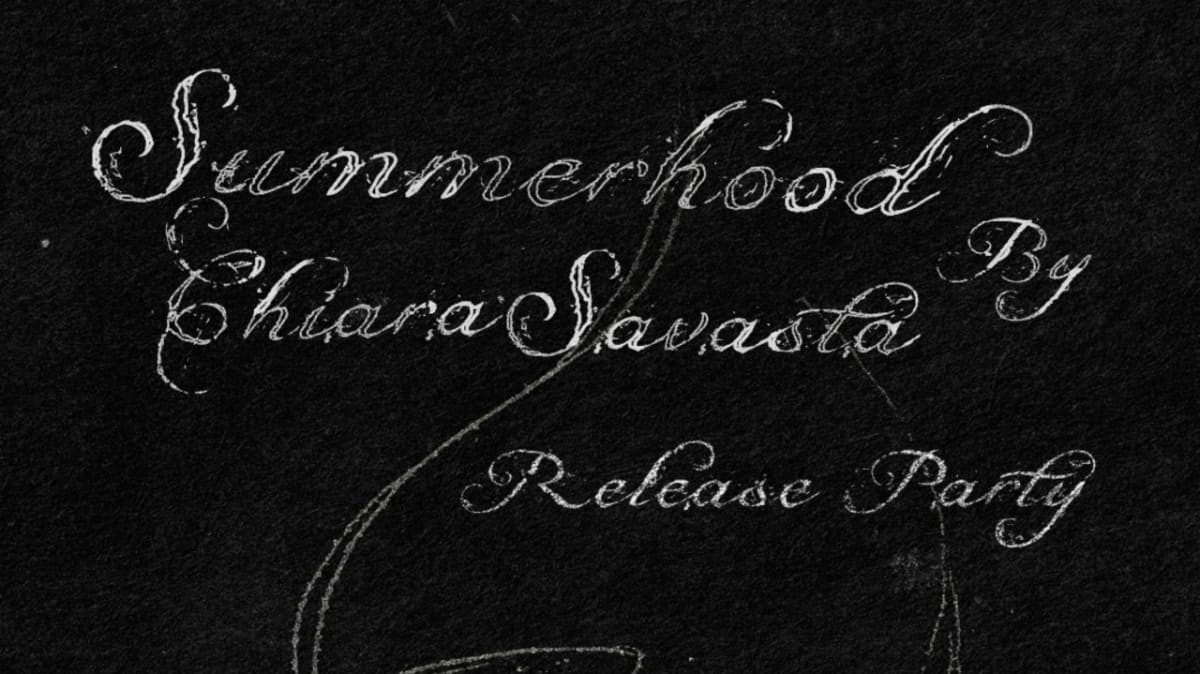 Summerhood
By
Chiara Savasta
Release Party